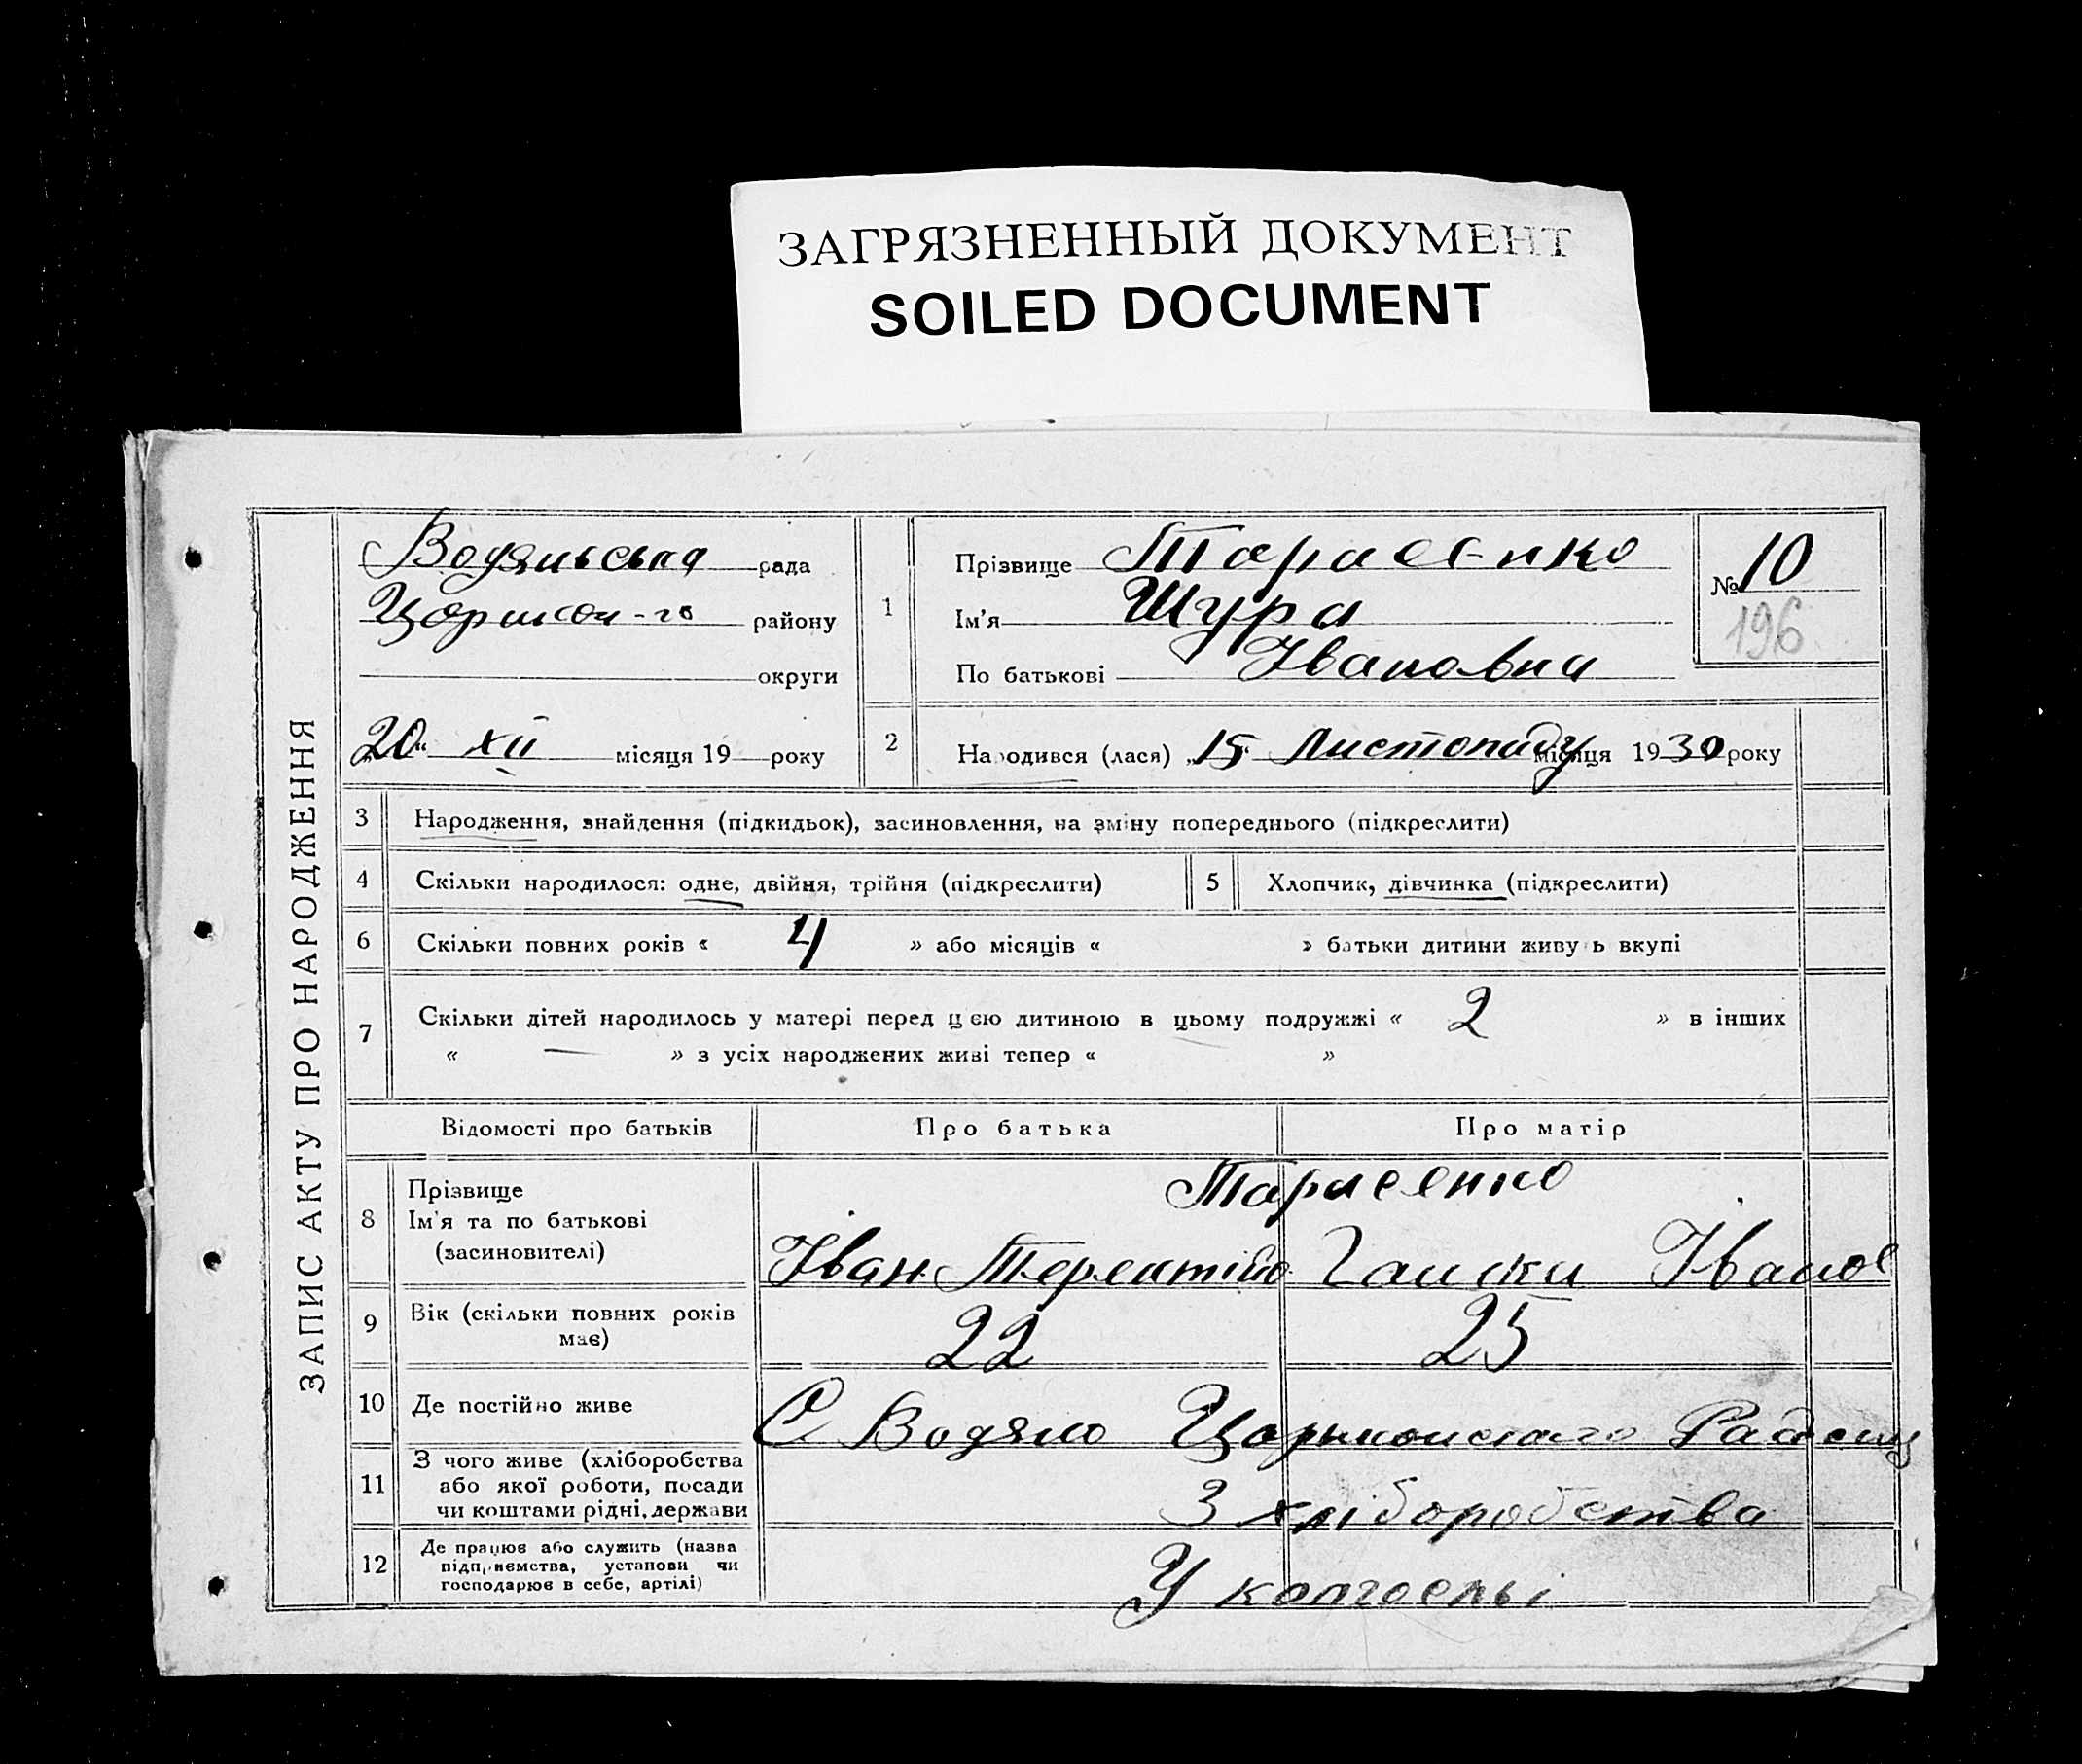 ЗАГРЯЗНЕННЫЙ ДОКУМЕНТ
SOILED DOCUMENT
ЗАПИС АКТУ ПРО НАРОДЖЕННЯ
Водянська рада
Царичан-го району
округи
„20“ XII місяця 19 року
1
Прізвище Тарасенко
Ім'я Шура
По батькові Івановна
№ 10
196
2 Народився (лася) „15“ Листопаду місяця 1930 року
3 Народження, знайдення (підкидьок), засиновлення, на зміну попереднього (підкреслити)
4 Скільки народилося: одне, двійня, трійня (підкреслити)
5 Хлопчик, дівчинка (підкреслити)
6 Скільки повних років « 4 » або місяців « » батьки дитини живуть вкупі
7 Скільки дітей народилось у матері перед цєю дитиною в цьому подружжі « 2 » в інших
« — » з усіх народжених живі тепер « »
Відомості про батьків Про батька Про матір
8 Прізвище Тарасенко
Ім'я та по батькові
(засиновителі) Іван Терентійо Іванов
9 Вік (скільки повних років
має) 22 25
10 Де постійно живе С Водяно
11 З чого живе (хліборобства
або якої роботи, посади
чи коштами рідні, держави З хліборобства
12 Де працює або служить (назва
підприємства, установи чи
господарює в себе, артілі) У колгоспі